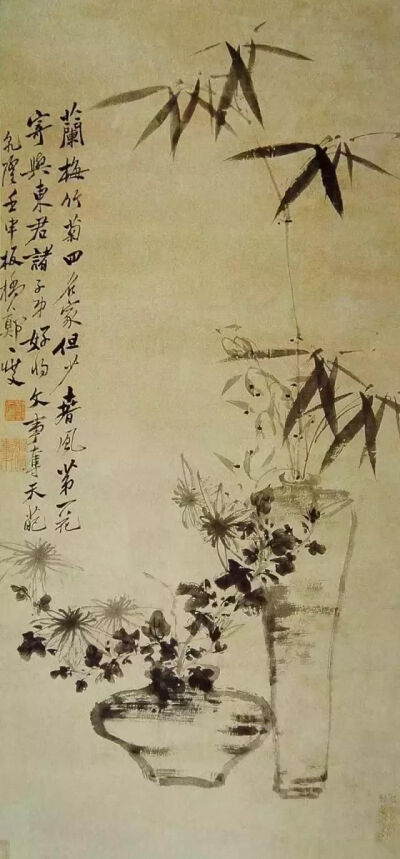 蘭梅竹菊四名家但少春風第一花
寄與東君諸子弟好将文事奪天葩
乾隆壬申板橋鄭燮